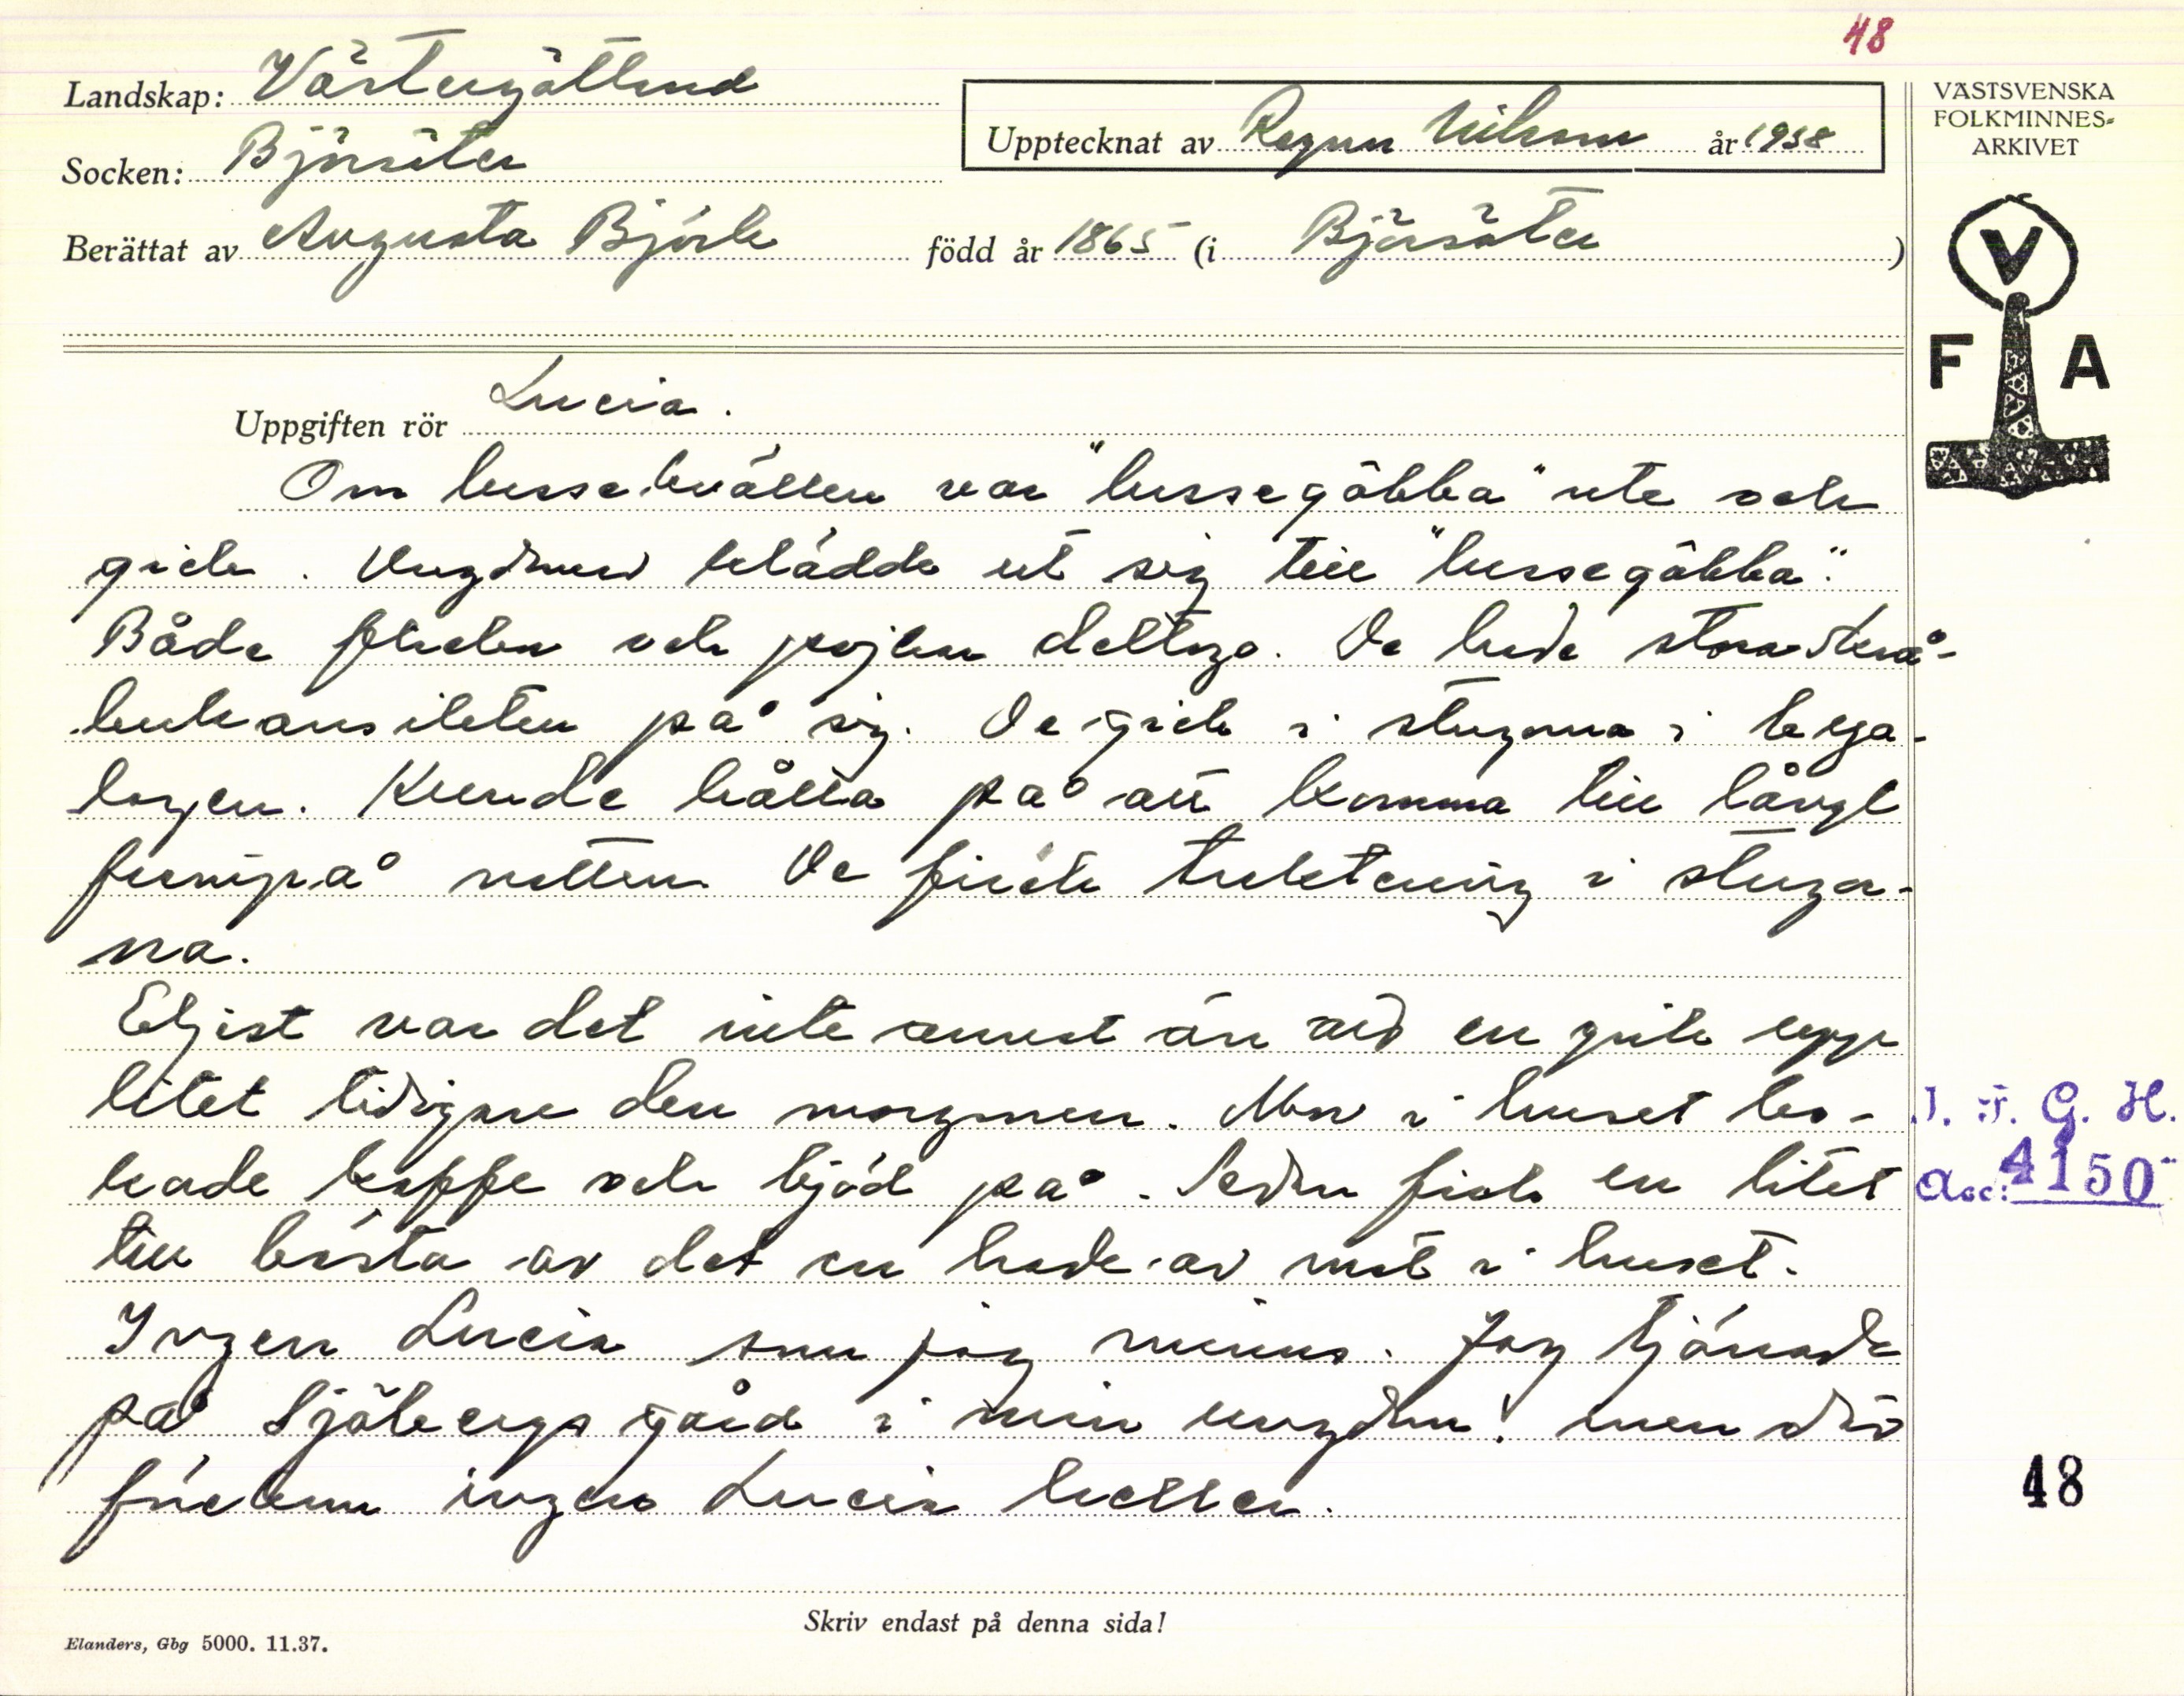 48
Landskap: Västergötland
Socken: Björsäter
Upptecknat av Ragnar Nilsson år 1938
Berättat av Augusta Björk född år 1865 (i Björsäter)
VÄSTSVENSKA
FOLKMINNES-
ARKIVET
V
F A
Uppgiften rör Lucia.
Om lussekvällen var "lussegubba" ute och
gick. Ungdomen klädde ut sig till "lussegubba".
Både flickor och pojkar deltogo. De hade
på sig. De gick i stugorna i
lagen. Kunde hålla på att komma till långt
fram på natten. De fick traktering i stugor-
na.
Eljest var det inte annat än att en gick upp
litet tidigare den morgonen. Mor i huset ko-
kade kaffe och bjöd på. Sedan fick en litet
till bästa av det en hade av mat i huset.
Ingen Lucia som jag minns. Jag tjänade
på Sjöbergs gård i min ungdom, men där
förekom ingen Lucia heller.
I. F. G. H.
Acc: 4150
48
Skriv endast på denna sida!
Elanders, Gbg 5000. 11.37.